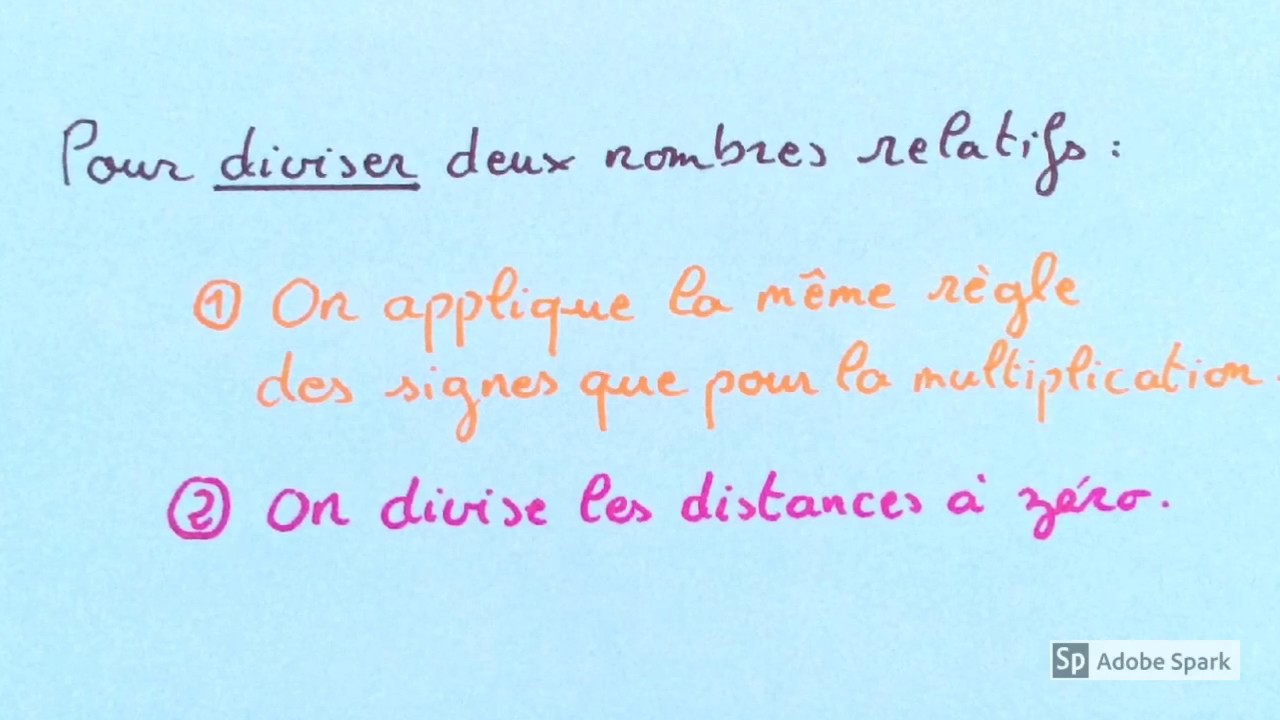 Pour diviser deux nombres relatifs :
① On applique la même règle
des signes que pour la multiplication.
② On divise les distances à zéro.
Sp Adobe Spark